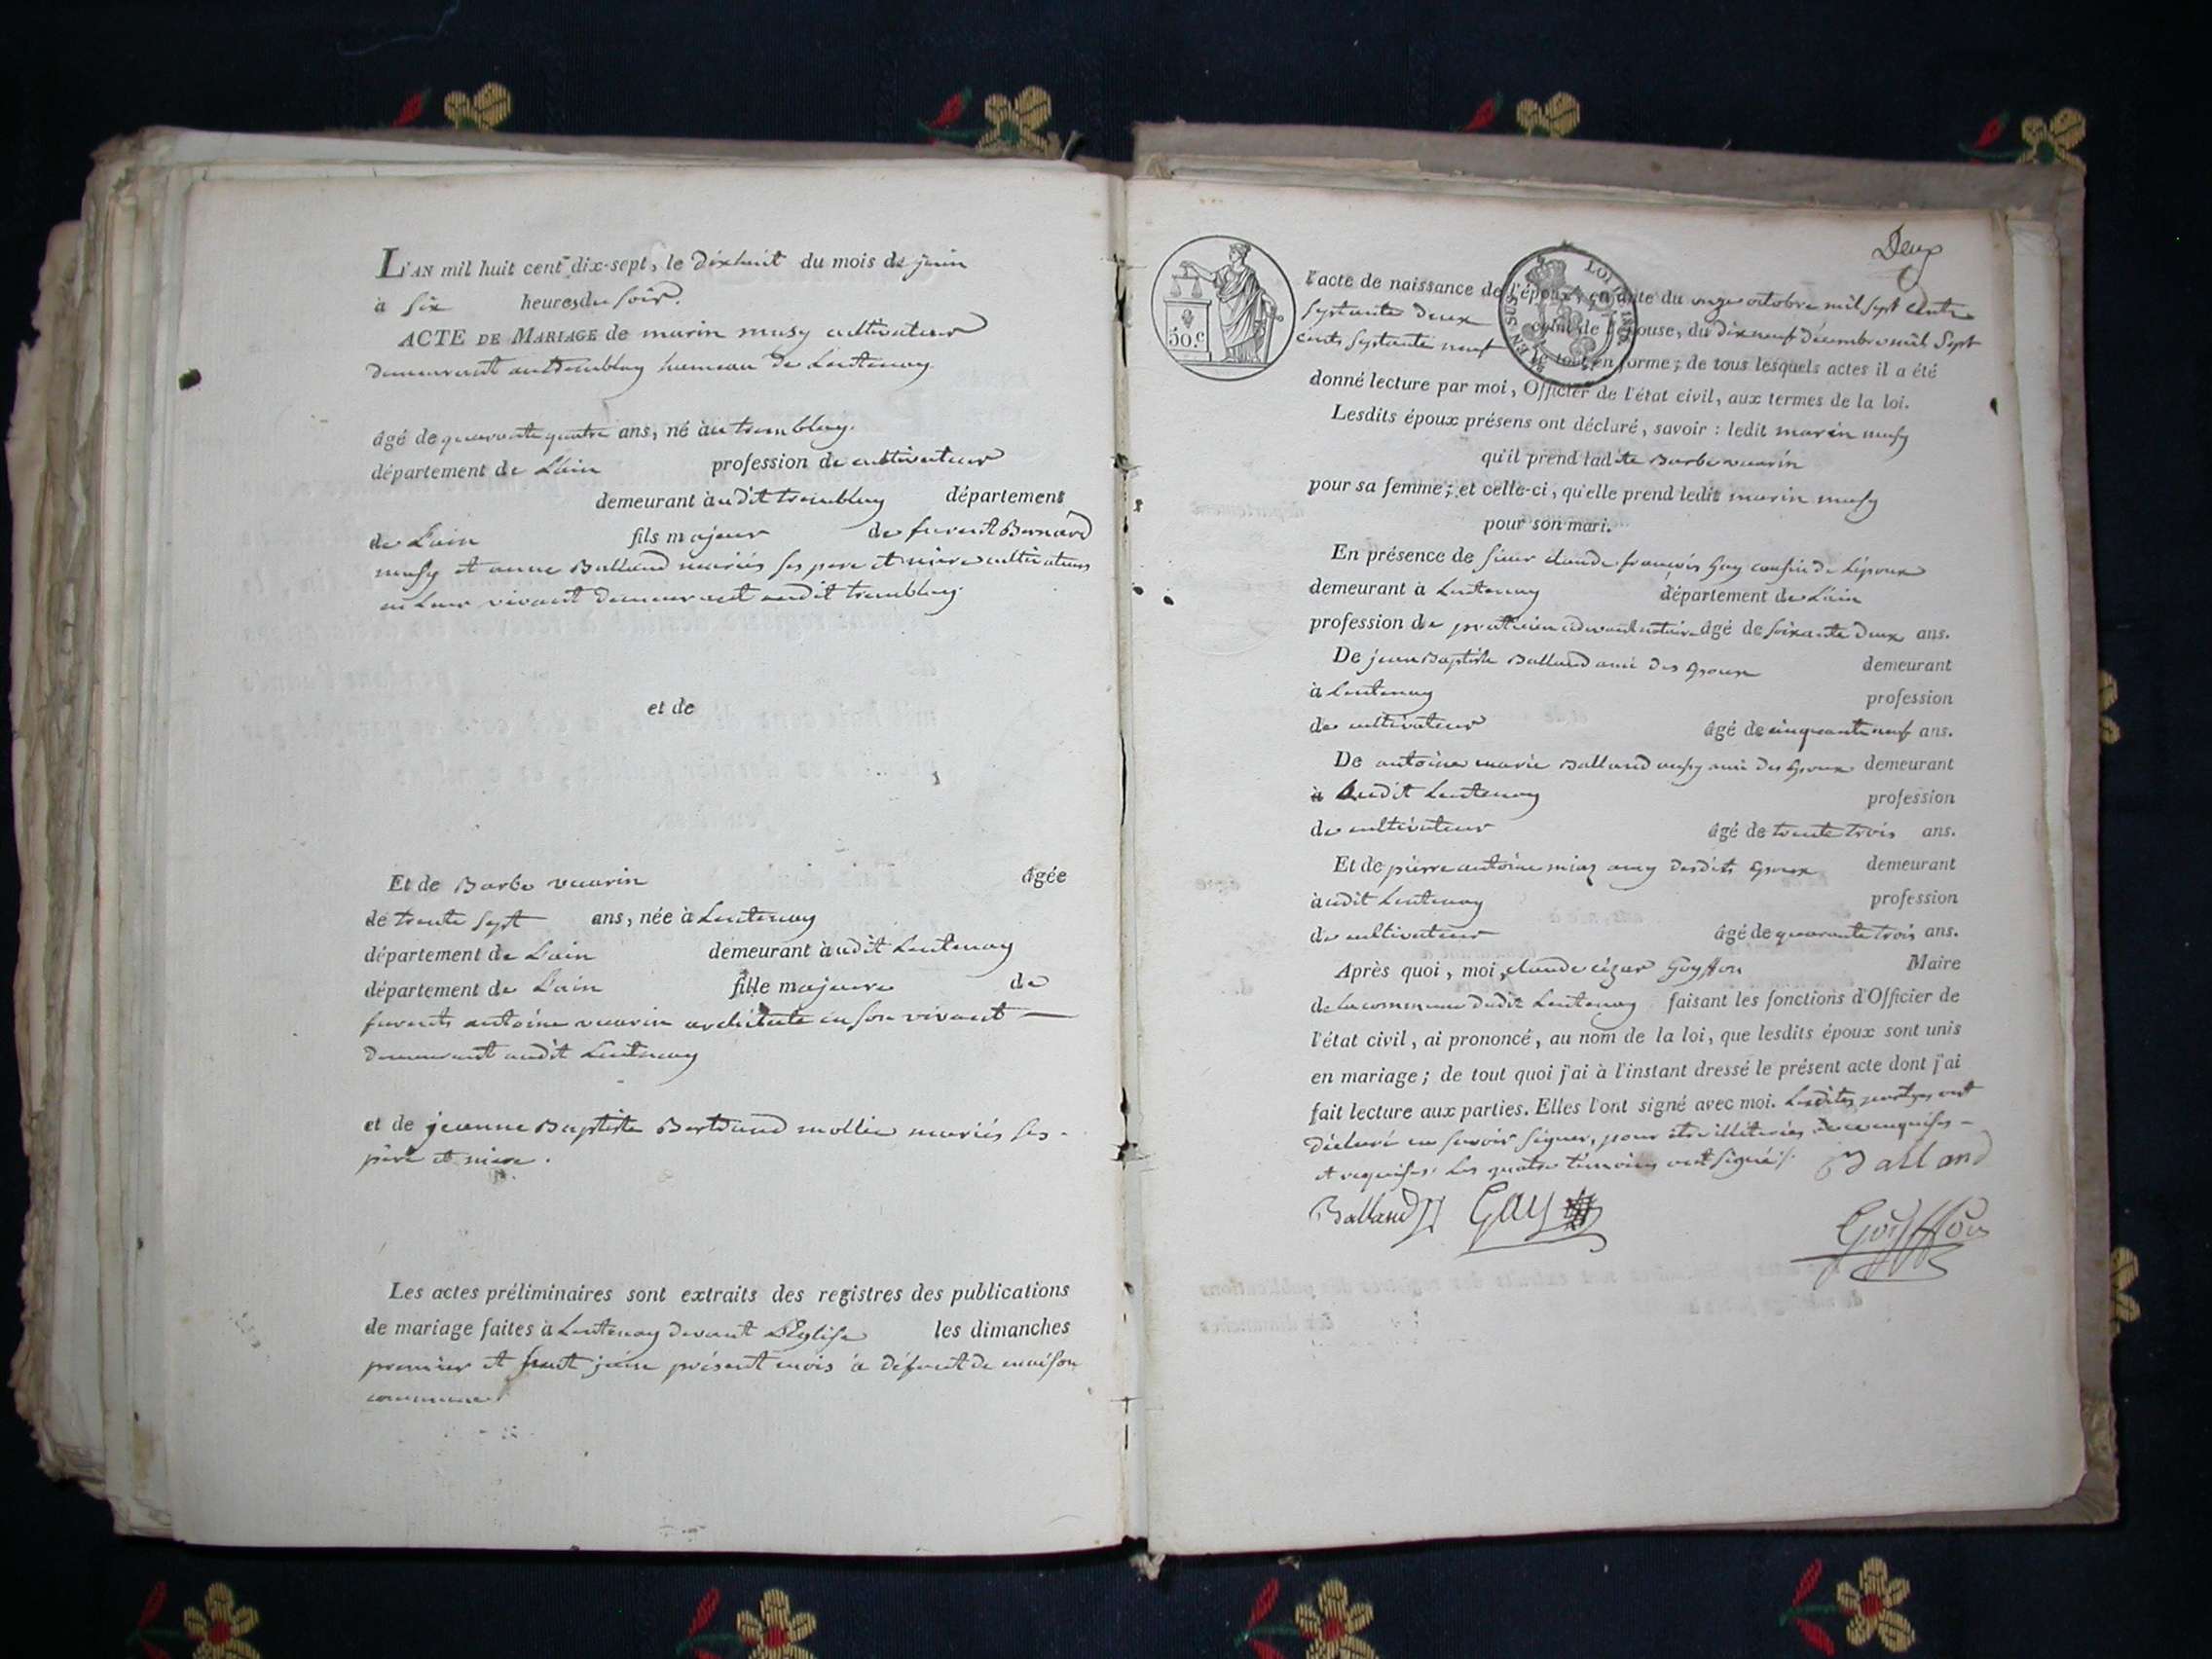 L'AN mil huit cent dix-sept, le dixhuit du mois de juin
à six heures du soir.
ACTE DE MARIAGE de marin musy cultivateur
demeurant au tremblay hameau de Lentenay
âgé de quarante quatre ans, né à u tremblay.
département de L'ain profession de cultivateur
demeurant à udit tremblay département
de L'ain fils majeur de furent Bernard
musy et anne Balland mariés ses pere et mere cultivateurs
en Leur vivant demeurant audit tremblay
et de
Et de Barbe vuarin âgée
de trente sept ans, née à Lentenay
département de L'ain demeurant à udit Lentenay
département de L'ain fille majeure de
furents antoine vuarin architecte en son vivant
demeurant audit Lentenay
et de jeanne Baptiste Bertrand mollie mariés ses
père et mere.
Les actes préliminaires sont extraits des registres des publications
de mariage faites à Lentenay devant L'Eglise les dimanches
premier et huit juin présent mois à défaut de maison
commune
Deux
50.c
LOI 1816
EN SUS
l'acte de naissance de l'époux, en date du onze octobre mil sept cents
septante deux celui de l'épouse, du dixneuf décembre mil sept
cents septante neuf le tout en forme; de tous lesquels actes il a été
donné lecture par moi, Officier de l'état civil, aux termes de la loi.
Lesdits époux présens ont déclaré, savoir : ledit marin musy
qu'il prend ladite Barbe vuarin
pour sa femme; et celle-ci, qu'elle prend ledit marin musy
pour son mari.
En présence de sieur claude françois Gay cousin de L'epoux
demeurant à Lentenay département de L'ain
profession de praticien notaire âgé de soixante deux ans.
De jean Baptiste Balland ami des Epoux demeurant
à Lentenay profession
de cultivateur âgé de cinquante neuf ans.
De antoine marie Balland ami des Epoux demeurant
à Ludit Lentenay profession
de cultivateur âgé de trente trois ans.
Et de pierre antoine amy desdits Epoux demeurant
à udit Lentenay profession
de cultivateur âgé de quarante trois ans.
Après quoi, moi, claude cézar Goyffon Maire
de La commune dudit Lentenay faisant les fonctions d'Officier de
l'état civil, ai prononcé, au nom de la loi, que lesdits époux sont unis
en mariage; de tout quoi j'ai à l'instant dressé le présent acte dont j'ai
fait lecture aux parties. Elles l'ont signé avec moi. Lesdites partyes ont
déclaré ne savoir signer, pour être illiterées de ce enquises
et requises. Les quatre témoins ont signés. Balland
Balland Gay Goyffon